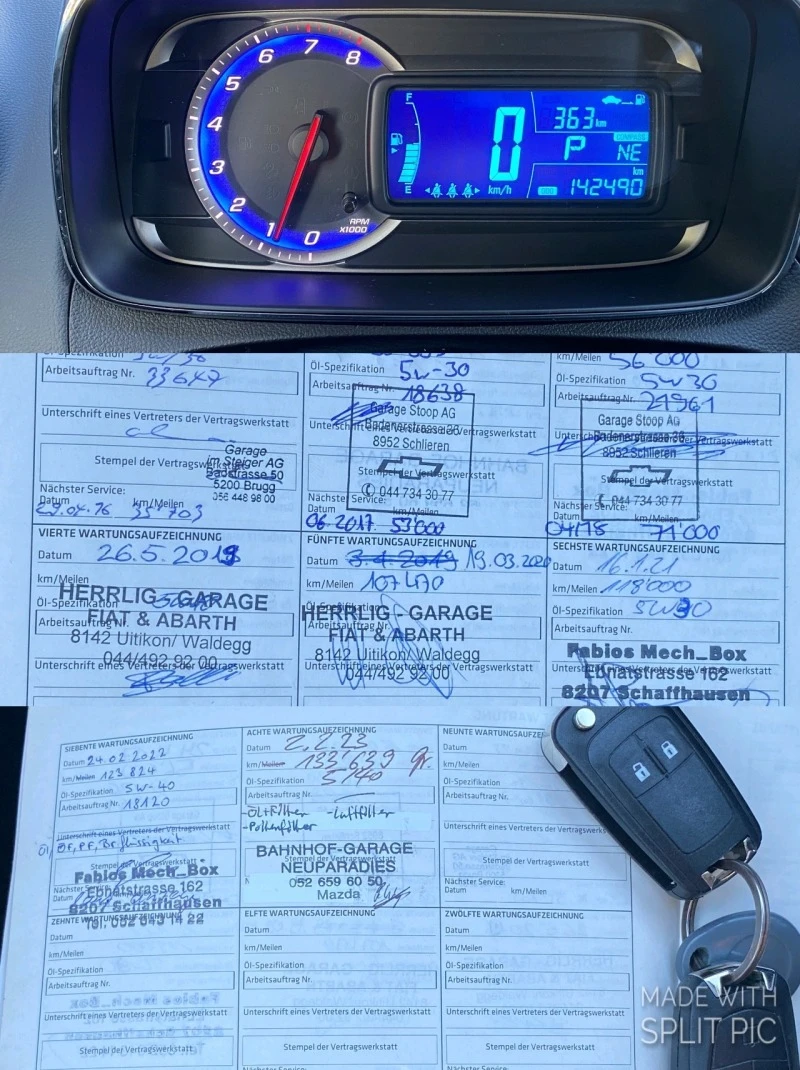 8
7
6
5
4
3
2
1
0
RPM
x1000
F
E
0
km/h
363 km
P
COMPASS
NE
km
ODO
142490
Öl-Spezifikation 5W/30
Arbeitsauftrag Nr.
Unterschrift eines Vertreters der Vertragswerkstatt
Stempel der Vertragswerkstatt
Garage
im Steiger AG
Badstrasse 50
5200 Brugg
056 448 98 00
Nächster Service:
Datum km/Meilen
35 703
Öl-Spezifikation 5w-30
Arbeitsauftrag Nr. 18638
Garage Stoop AG
Unterschrift eines Vertreters der Vertragswerkstatt
Badenerstrasse 36
8952 Schlieren
Stempel der Vertragswerkstatt
044 734 30 77
Nächster Service:
Datum km/Meilen
06.2017 53'000
km/Meilen 56 000
Öl-Spezifikation 5W30
Arbeitsauftrag Nr. 21961
Garage Stoop AG
Unterschrift eines Vertreters der Vertragswerkstatt
Badenerstrasse 36
8952 Schlieren
Stempel der Vertragswerkstatt
044 734 30 77
Nächster Service:
Datum km/Meilen
04/18 71'000
VIERTE WARTUNGSAUFZEICHNUNG
Datum 26.5.2018
km/Meilen
HERRLIG - GARAGE
Öl-Spezifikation
FIAT & ABARTH
Arbeitsauftrag Nr.
8142 Uitikon/ Waldegg
044/492 92 00
Unterschrift eines Vertreters der Vertragswerkstatt
FÜNFTE WARTUNGSAUFZEICHNUNG
Datum 3.4.2019 19.03.2020
km/Meilen 107470
Öl-Spezifikation
HERRLIG - GARAGE
Arbeitsauftrag Nr.
FIAT & ABARTH
8142 Uitikon/ Waldegg
Unterschrift eines Vertreters der Vertragswerkstatt
044/492 92 00
SECHSTE WARTUNGSAUFZEICHNUNG
Datum 16.1.21
km/Meilen 118'000
Öl-Spezifikation 5W30
Arbeitsauftrag Nr.
Fabios Mech_Box
Unterschrift eines Vertreters der Vertragswerkstatt
Ebnatstrasse 162
8207 Schaffhausen
SIEBENTE WARTUNGSAUFZEICHNUNG
Datum 24.02.2022
km/Meilen 123 824
Öl-Spezifikation 5W-40
Arbeitsauftrag Nr. 18120
Unterschrift eines Vertreters der Vertragswerkstatt
Öl, ÖF, PF, Br flüssigkeit
Stempel der Vertragswerkstatt
Fabios Mech_Box
Ebnatstrasse 162
8207 Schaffhausen
Tel. 052 643 14 22
ACHTE WARTUNGSAUFZEICHNUNG
Datum 2.2.23
km/Meilen 133'639 gr.
Öl-Spezifikation 5/40
Arbeitsauftrag Nr.
-Öl+Filter -Luftfilter
-Pollenfilter
BAHNHOF-GARAGE
Stempel der Vertragswerkstatt
NEUPARADIES
052 659 60 50
Mazda
NEUNTE WARTUNGSAUFZE
Datum
km/Meilen
Öl-Spezifikation
Arbeitsauftrag Nr.
Unterschrift eines Vertreters der Vertragswerkstatt
Stempel der Vertragswerkstatt
Nächster Service:
Datum km/Meilen
ZEHNTE WARTUNGSAUFZEICHNUNG
Datum
km/Meilen
Öl-Spezifikation
Arbeitsauftrag Nr.
Unterschrift eines Vertreters der Vertragswerkstatt
Stempel der Vertragswerkstatt
ELFTE WARTUNGSAUFZEICHNUNG
Datum
km/Meilen
Öl-Spezifikation
Arbeitsauftrag Nr.
Unterschrift eines Vertreters der Vertragswerkstatt
Stempel der Vertragswerkstatt
Nächster Service:
ZWÖLFTE WARTUNGSAUFZEICHNUNG
Datum
km/Meilen
Öl-Spezifikation
Arbeitsauftrag Nr.
Unterschrift eines Vertreters der Vertragswerkstatt
Stempel der Vertragswerkstatt
MADE WITH
SPLIT PIC